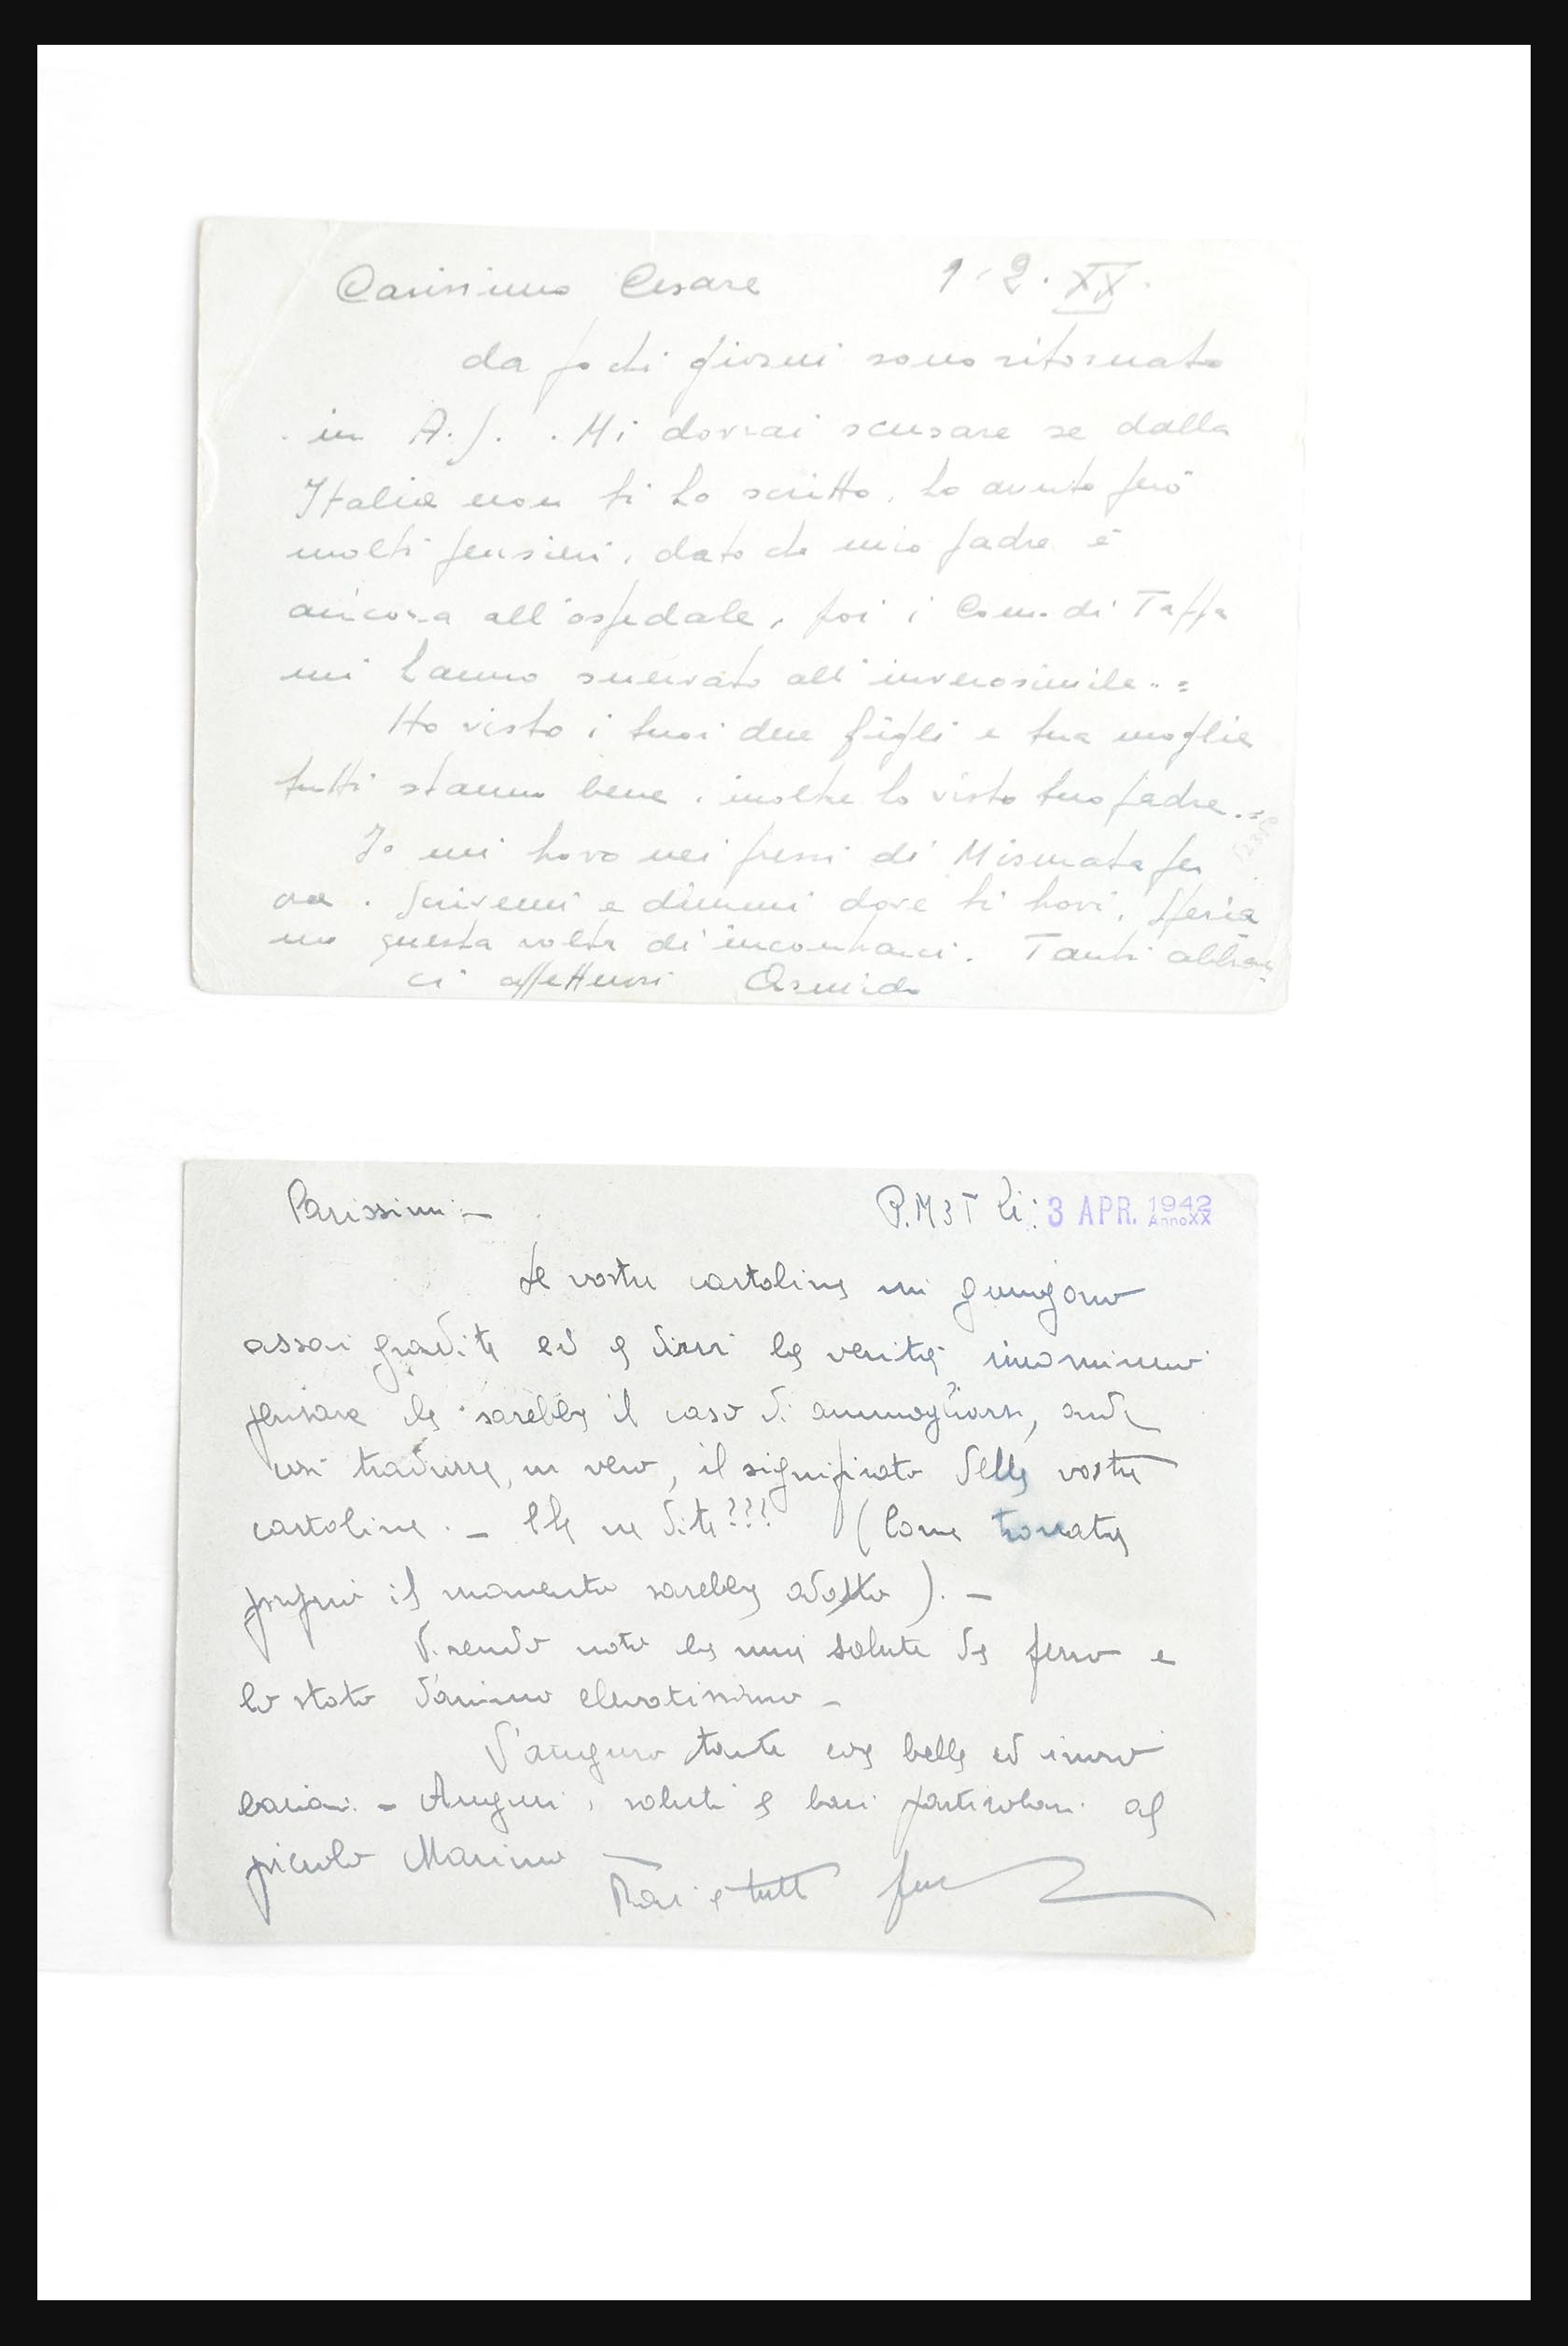 Carissimo Cesare 1. 2. XX.
da pochi giorni sono ritornato
in A.S. . Mi dovrai scusare se dalla
Italia non ti ho scritto, ho avuto però
molti pensieri, dato che mio padre è
ancora all'ospedale, poi i Com. di Tappa
mi hanno snervato all'inverosimile..=
Ho visto i tuoi due figli e tua moglie
tutti stanno bene, inoltre ho visto tuo padre..=
Io mi trovo nei pressi di Misurata per
ora. Scrivemi e dimmi dove ti trovi. Speria
mo questa volta di incontrarci. Tanti abbrac
ci affettuosi Armido
Carissimi - P.M 3T li: 3 APR. 1942 Anno XX
Le vostre cartoline mi giungono
assai gradite ed a dirvi la verità
pensare che sarebbe il caso di ammogliarsi, onde
così tradurre, in vero, il significato delle vostre
cartoline. - Che ne dite??? (Come trovata
proprio il momento sarebbe adatto). -
Vi rendo noto la mia salute di ferro e
lo stato d'animo elevatissimo -
V'auguro tante cose belle ed invio
bacioni. - Auguri, saluti e baci particolari al
piccolo Marino -
Baci a tutti